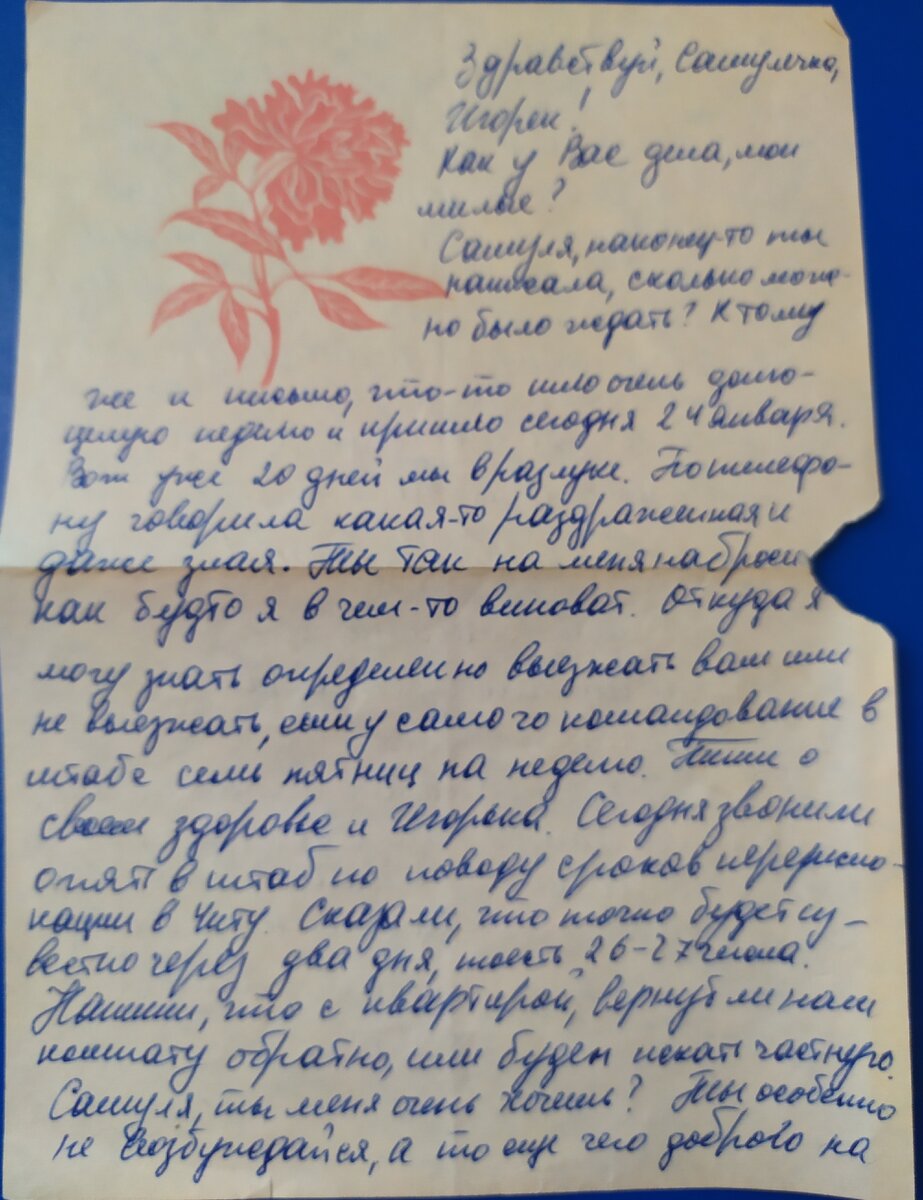 Здравствуй, Сашулечка,
Игорек!
Как у Вас дела, мои
милые?
Сашуля, наконец-то ты
написала, сколько мож-
но было ждать? К тому
же и письмо, что-то шло очень долго-
целую неделю и пришло сегодня 24 января.
Вот уже 20 дней мы в разлуке. По телефо-
ну говорила какая-то раздраженная и
даже злая. Ты так на меня наброси
как будто я в чем-то виноват. Откуда я
могу знать определенно выезжать вам или
не выезжать, если у самого командование в
штабе семь пятниц на неделю. Пиши о
своем здоровье и Игорька. Сегодня звонили
опять в штаб по поводу сроков передисло-
кации в Читу. Сказали, что точно будет из-
вестно через два дня, тоесть 26-27 числа.
Напиши, что с квартирой, вернут ли нам
комнату обратно, или будем искать частную.
Сашуля, ты меня очень хочешь? Ты особенно
не возбуждайся, а то еще чего доброго на